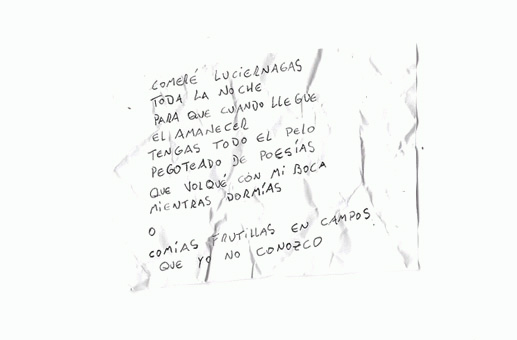 COMERÉ LUCIERNAGAS
TODA LA NOCHE
PARA QUE CUANDO LLEGUE
EL AMANECER
TENGAS TODO EL PELO
PEGOTEADO DE POESÍAS
QUE VOLQUÉ CON MI BOCA
MIENTRAS DORMÍAS
O
COMÍAS FRUTILLAS EN CAMPOS
QUE YO NO CONOZCO